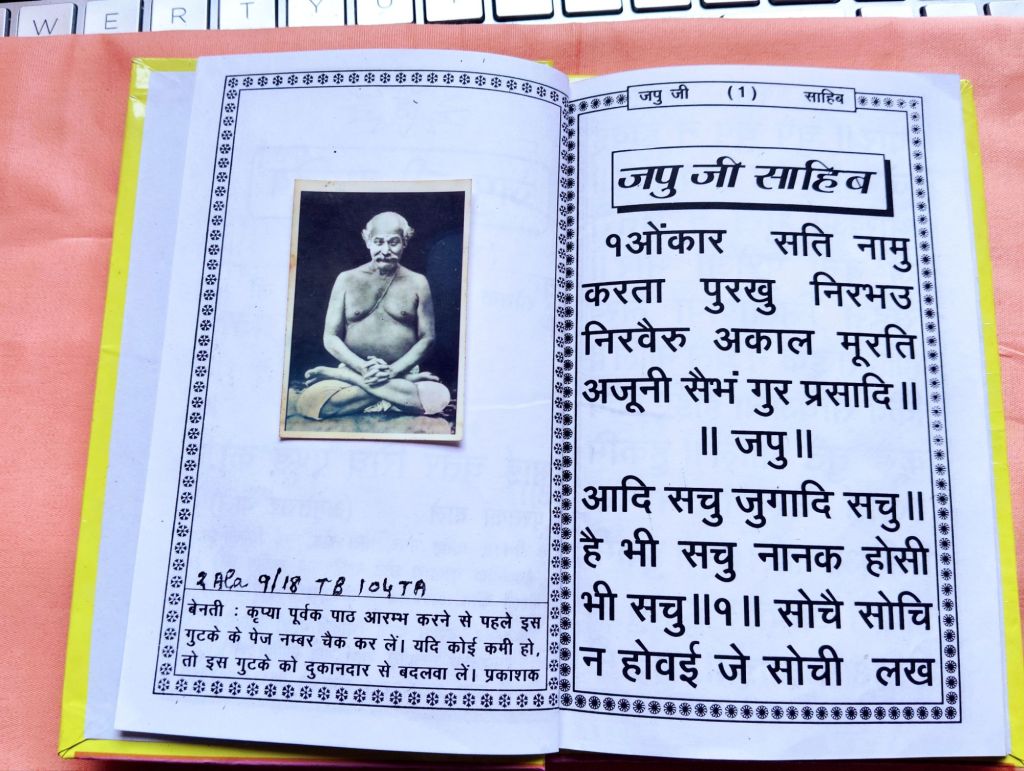 W E R T Y U
2 Ala 9/18 TB 104TA
बेनती : कृप्या पूर्वक पाठ आरम्भ करने से पहले इस
गुटके के पेज नम्बर चैक कर लें। यदि कोई कमी हो,
तो इस गुटके को दुकानदार से बदलवा लें। प्रकाशक
जपु जी (1) साहिब
जपु जी साहिब
१ओंकार सति नामु
करता पुरखु निरभउ
निरवैरु अकाल मूरति
अजूनी सैभं गुर प्रसादि॥
॥ जपु॥
आदि सचु जुगादि सचु॥
है भी सचु नानक होसी
भी सचु॥१॥ सोचै सोचि
न होवई जे सोची लख